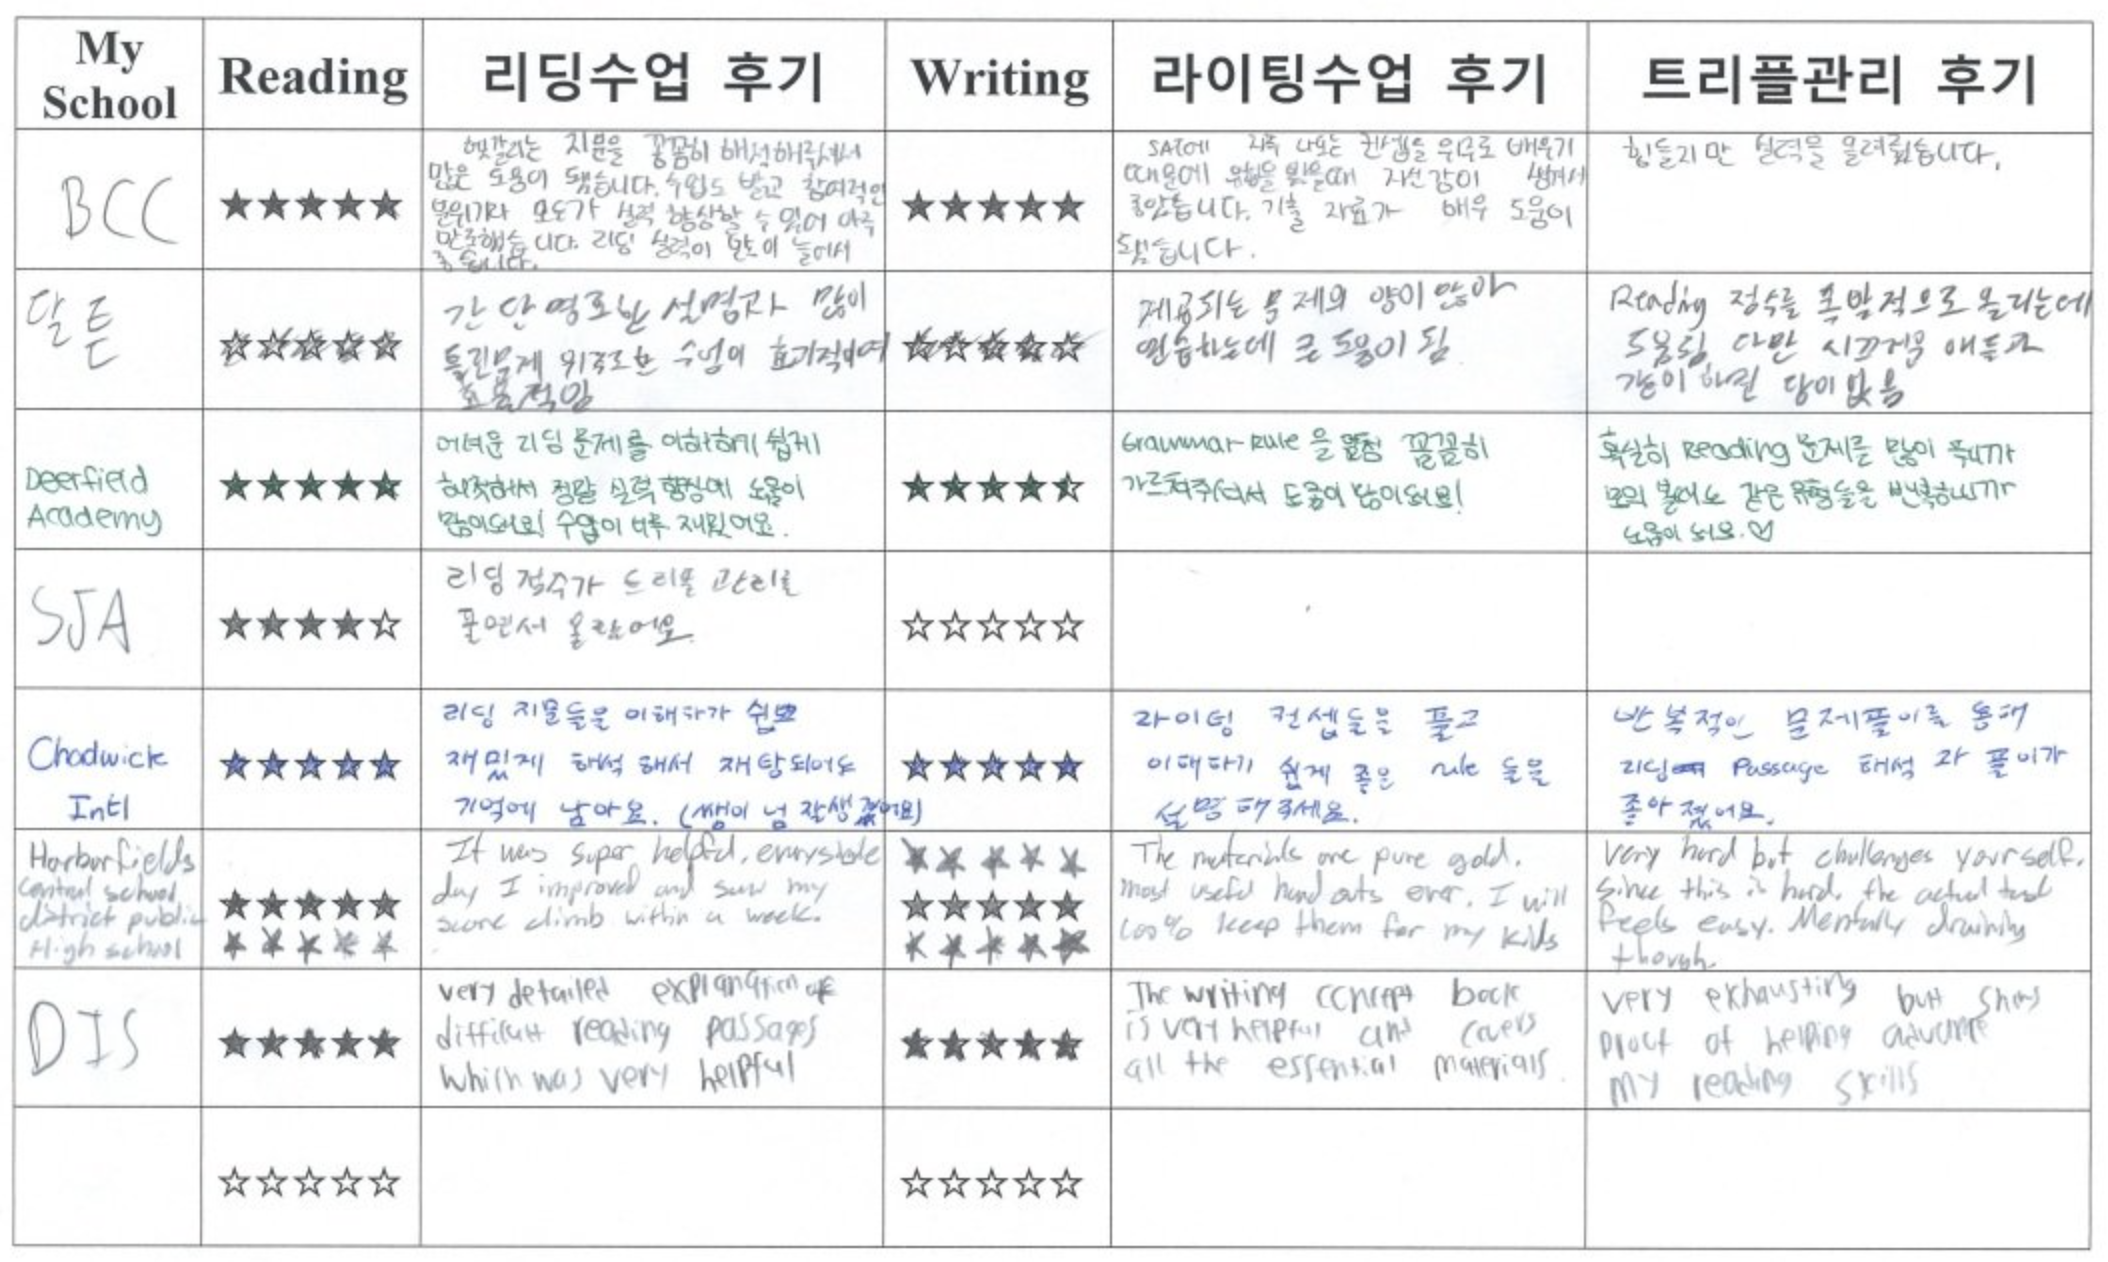 My School
Reading
리딩수업 후기
Writing
라이팅수업 후기
트리플관리 후기
BCC
★★★★★
헷갈리는 지문을 꼼꼼히 해석해주셔서
많은 도움이 됐습니다. 수업도 밝고 참여적인
분위기라 모두가 실력 향상할 수 있어 아주
만족했습니다. 리딩 실력이 많이 늘어서
좋습니다.
★★★★★
SAT에 자주 나오는 컨셉들 위주로 배우기
때문에 유형을 봤을때 자신감이 생겨서
좋았습니다. 기출 자료가 매우 도움이
됐습니다.
힘들지만 실력을 올려줬습니다.
달튼
★★★★★
간단명료한 설명과 많이
틀린문제 위주로한 수업이 효과적이며
효율적임
★★★★★
제공되는 문제의 양이 많아
연습하는데 큰 도움이 됨
Reading 점수를 폭발적으로 올리는데
도움됨 다만 시끄러운 애들과
같이 하면 답이없음
Deerfield
Academy
★★★★★
어려운 리딩 문제를 이해하기 쉽게
해석해서 정말 실력 향상에 도움이
많이되요! 수업이 너무 재밌어요.
★★★★★
Grammar Rule 을 꼼꼼히
가르쳐주셔서 도움이 많이되요!
확실히 Reading 문제를 많이 푸니까
모의 볼때도 같은 유형들을 반복하니까
도움이 되요.♡
SJA
★★★★☆
리딩 점수가 트리플 관리를
풀면서 올랐어요.
☆☆☆☆☆
Chadwick
Intl
★★★★★
리딩 지문들을 이해하기 쉽고
재밌게 해석해서 재탕되어도
기억에 남아요. (쌤이 넘 잘생겼어요)
★★★★★
라이팅 컨셉들을 풀고
이해하기 쉽게 좋은 rule 들을
설명해주세요.
반복적인 문제풀이를 통해
리딩 Passage 해석과 풀이가
좋아졌어요.
Harborfields
central school
district public
High school
★★★★★
★★★★★
It was super helpful. every single
day I improved and saw my
score climb within a week.
★★★★★
★★★★★
★★★★★
The materials are pure gold.
most useful hand outs ever. I will
100% keep them for my kids
Very hard but challenges yourself.
Since this is hard, the actual test
feels easy. Mentally draining
though.
DIS
★★★★★
very detailed explanation of
difficult reading passages
which was very helpful
★★★★★
The writing concept book
is very helpful and covers
all the essential materials.
very exhausting but shows
proof of helping advance
my reading skills
☆☆☆☆☆
☆☆☆☆☆